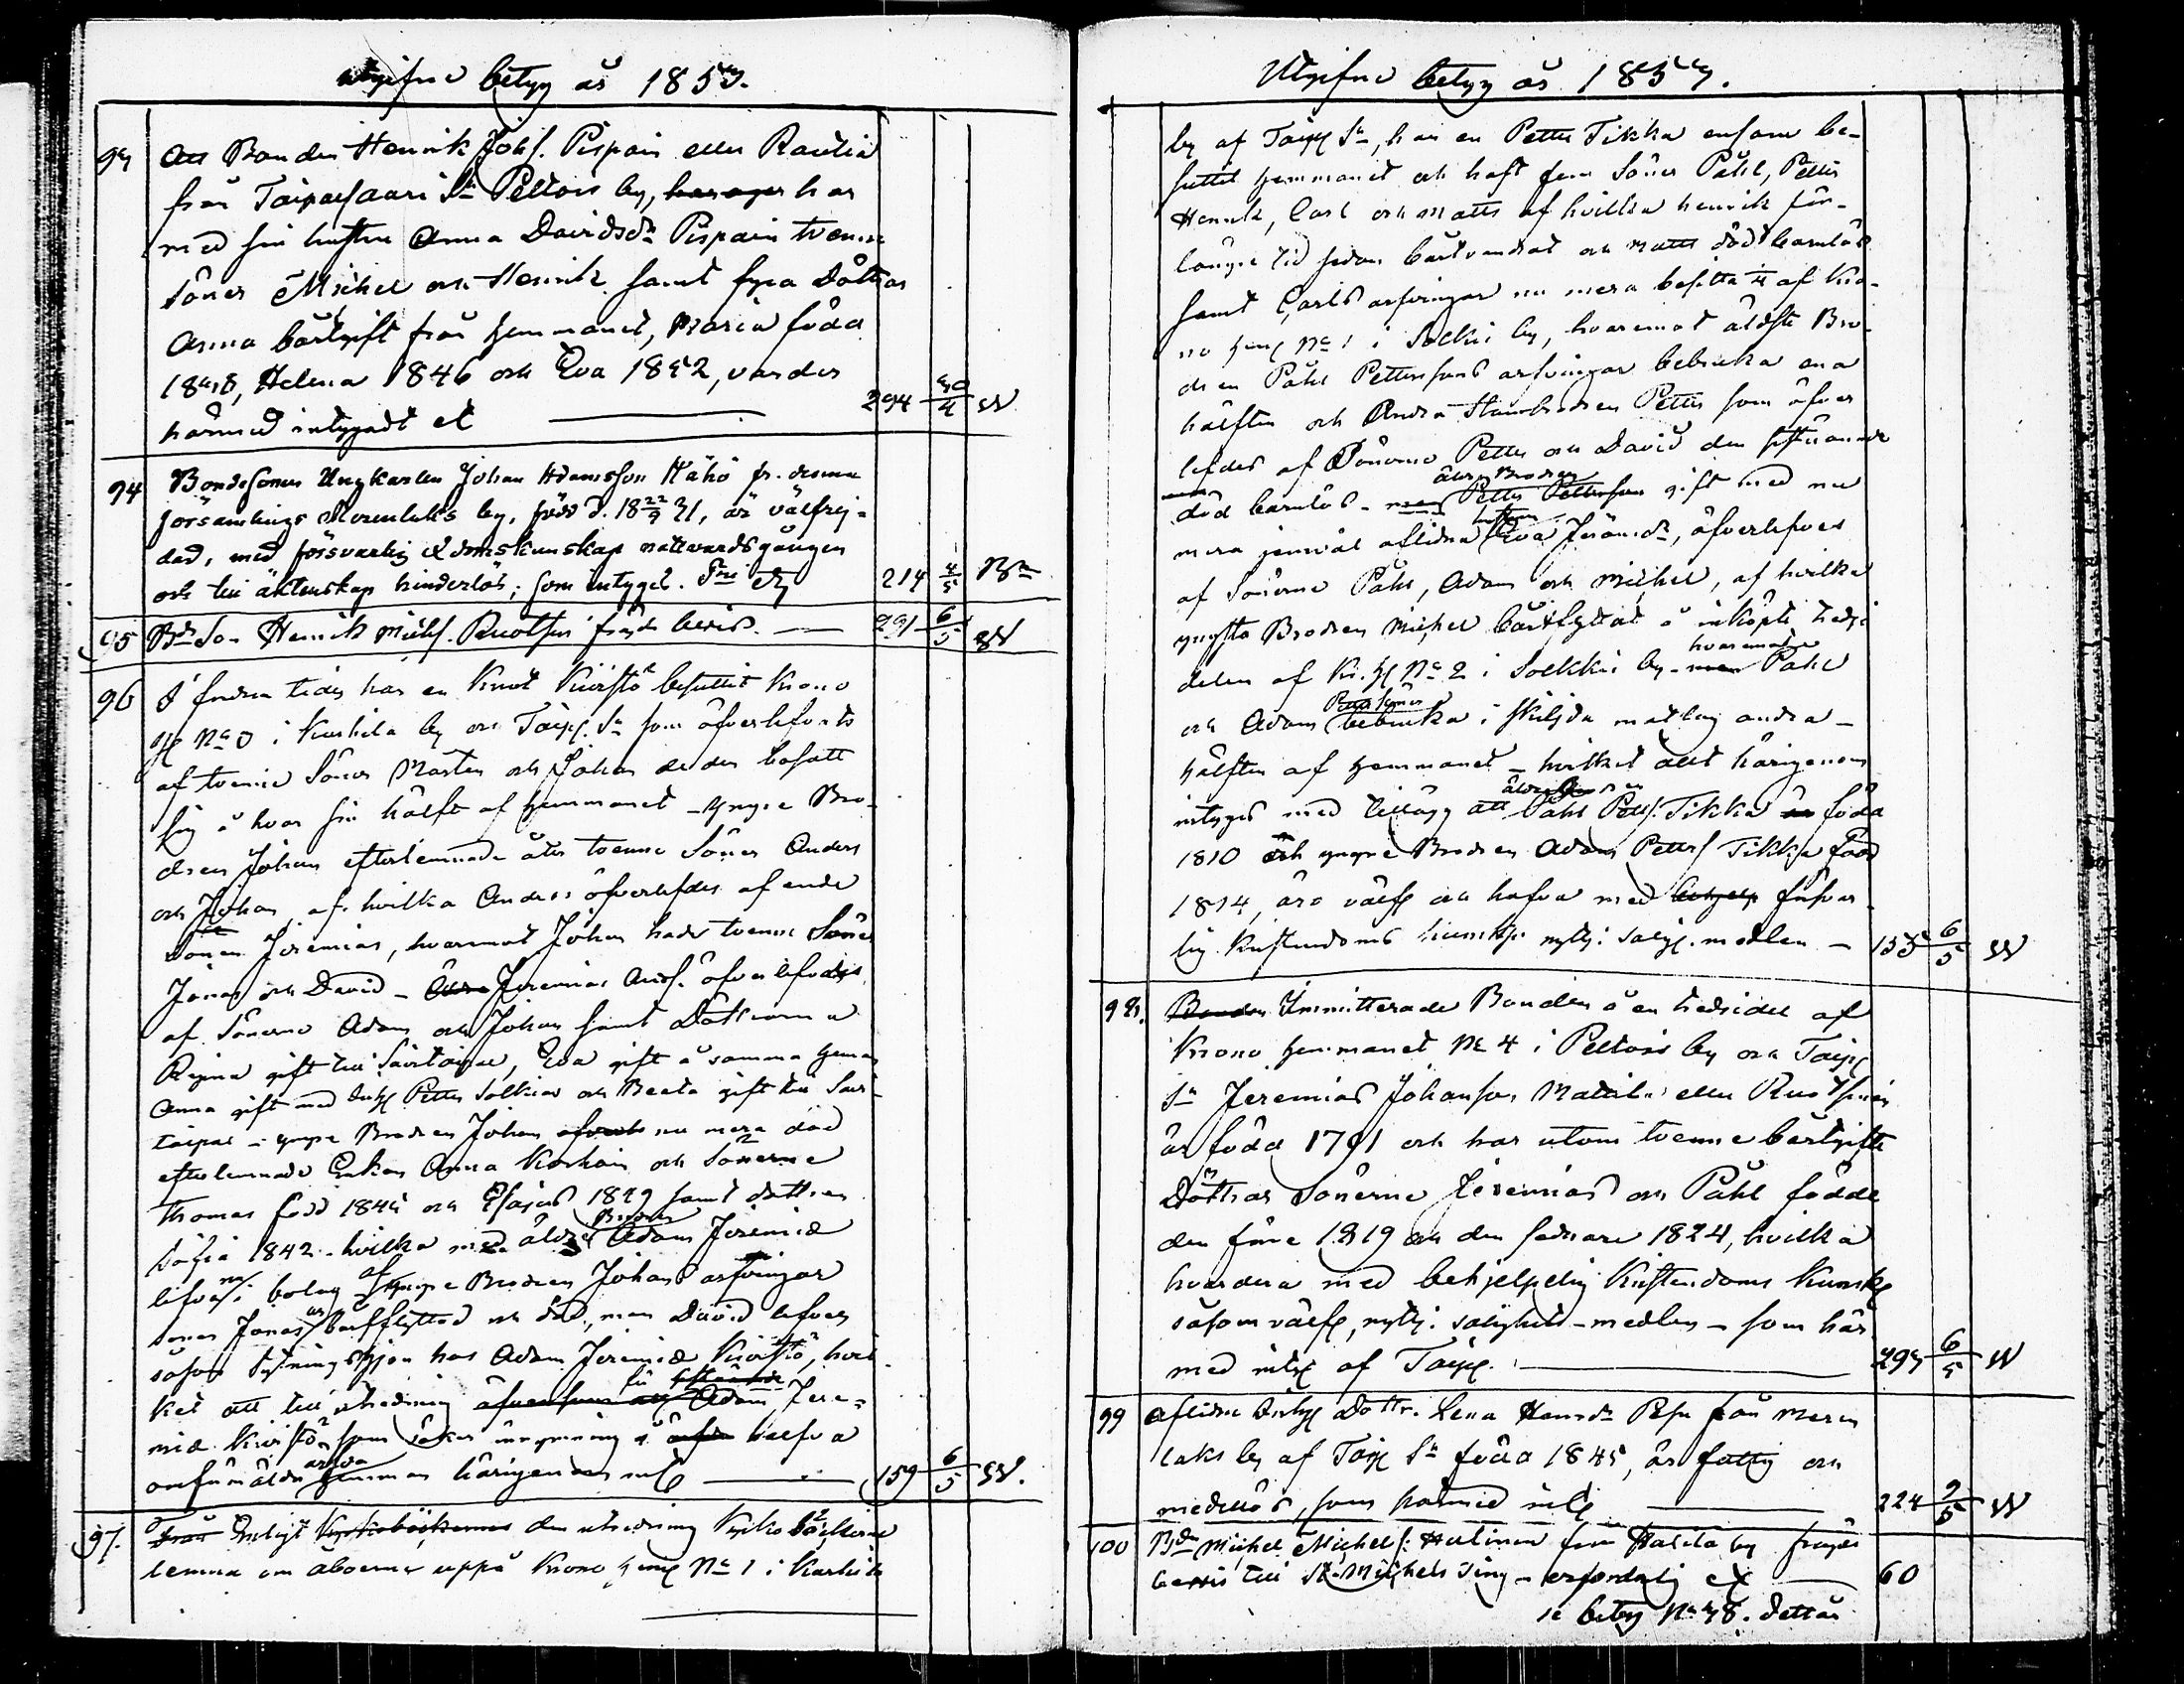 utgifne betyg år 1853.
93 att Bonden Henrik Johs. Pispain eller Rautia
från Taipalsaari Sn Peltois by, har
med sin hustru Anna Davidsdr Pispain tvenne
söner Michel och Henrik samt fyra döttrar
Anna bårtgift från hemmanet, Maria född
1838, Helena 1846 och Eva 1852, varder
härmed intygadt et 294 30/4 W
94 Bondesonen Ungkarlen Johan Adamsson Kähö fr. denna
församlings Merenlaks by, född d. 18 22/9 31, är välfrej-
dad, med försvarlig christendomskunskap nattvardsgången
och till äktenskap hinderlös; som intygas. 214 4/5
95 Bde Son Henrik Michs. Ruotsin frejde bevis. 291 6/5 W
96 I fordna tider har en Knut Kiiristö besuttit Krono
H No 3 i Karhila by och Taip. Sn som öfverlefvats
af tvenne söner Morten och Johan de der besatt
sig å hvar sin hälft af hemmanet - yngre Bro-
dren Johan efterlemnade åter tvenne Söner Anders
och Johan, af hvilka Anders öfverlefdes af ende
Sonen Jeremias, hvaremot Johan hade tvenne Söner
Jonas och David - Jeremias Ands. öfverlefvdes
af Sönerne Adam och Johan samt Döttrarna
Regina gift till Savitaipal, Eva gift å samma hemman
Anna gift med Inh Petter Solkia och Beata gift till Savi-
taipal - yngre Brodren Johan nu mera död
efterlemnade Enkan Anna Korhoin och Sönerne
Thomas född 1845 och Esajas 1849 samt dottren
Sofia 1842 - hvilka med äldre Brodren Adam Jeremiæ
lefva i bolag af yngre Brodren Johans arfvingar
sonen Jonas är bortflyttad och död, men David lefver
såsom sytningshjon hos Adam Jeremiæ Kiiristö, hvil-
ket allt till utredning Adam Jere-
miæ Kiiristö som söker inrymning å halfva
omförmälda hemman härigenom
159 6/5 W.
97. Enligt den utredning Kyrkoböckerne
lemna om åboerne uppå Krono hem No 1 i Karhila
Utgifne betyg år 1853.
by af Taip Sn, har en Petter Tikka ensam be-
suttit hemmanet och haft fem Söner Påhl, Petter
Henrik, Carl och Matts af hvilka Henrik för
längre tid sedan bårtvandrat och Matts död barnlös
samt Carls arfvingar nu mera besitta 1/4 af Kro-
no hem No 1 i Solkis by, hvaremot äldste Bro-
dren Påhl Petterssons arfvingar bebruka ena
hälften och Andra Stambrodren Petter som öfver
lefdes af Sönerne Petter och David den sistnämnde
död barnlös - äldre Brodren Petter Pettersson gift med nu
mera jemväl aflidna hustrun Eva Jeremdr, öfverlefves
af Sönerne Påhl, Adam och Michel, af hvilka
yngsta Brodren Michel bårtflyttat å inköpte tredje
delen af Kr. H No 2 i Solkkis by - hvaremot Påhl
och Adam bebruka i skiljda matlag andra
hälften af hemmanet - hvilket allt härigenom
intygas med tillägg att äldre Brodren Påhl Petts. Tikka född
1810 och yngre Brodren Adam Petters Tikka född
1814, äro välf och hafva med försvar-
lig Kristendoms kunskp nyttj. salighs. medlen - 155 6/5 W
98. Immitterade Bonden å en tredjedel af
Krono hemmanet No 4 i Peltois by och Taip
Sn Jeremias Johansson Mattila eller Ruotsin
är född 1791 och har utom tvenne bårtgifte
Döttrar Sönerne Jeremias och Påhl födde
den förre 1819 och den sednare 1824, hvilka
hvardera med behjelpelig Kristendoms Kunskp
såsom välf, nyttj. salighets-medlen - som här
med intyg af Taip. 293 6/5 W
99 Aflidne Inhys Dottr. Lena Hansdr Pesu från Meren
laks by af Taip Sn född 1845, är fattig och
medellös, som härmed 224 2/5 W
100 Bde Michel Michels: Hulinen från Halila by frejde
bevis till St. Michels Ting - erforderlig ex 60
se betyg No 48. dettaår